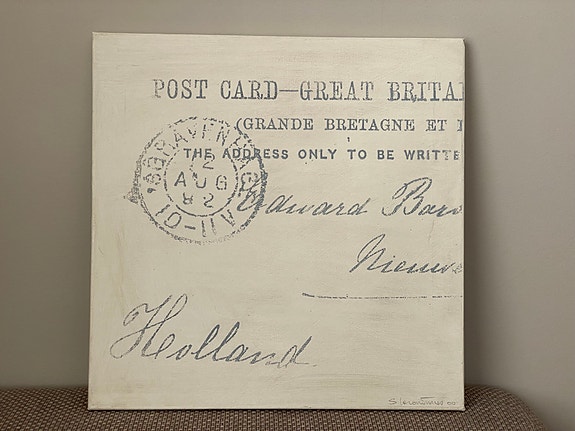 POST CARD—GREAT BRITAI
(GRANDE BRETAGNE ET I
THE ADDRESS ONLY TO BE WRITTE
'SGRAVENHAGE
2
AUG
82
11-12
Edward Baro
Nieuwe
Holland